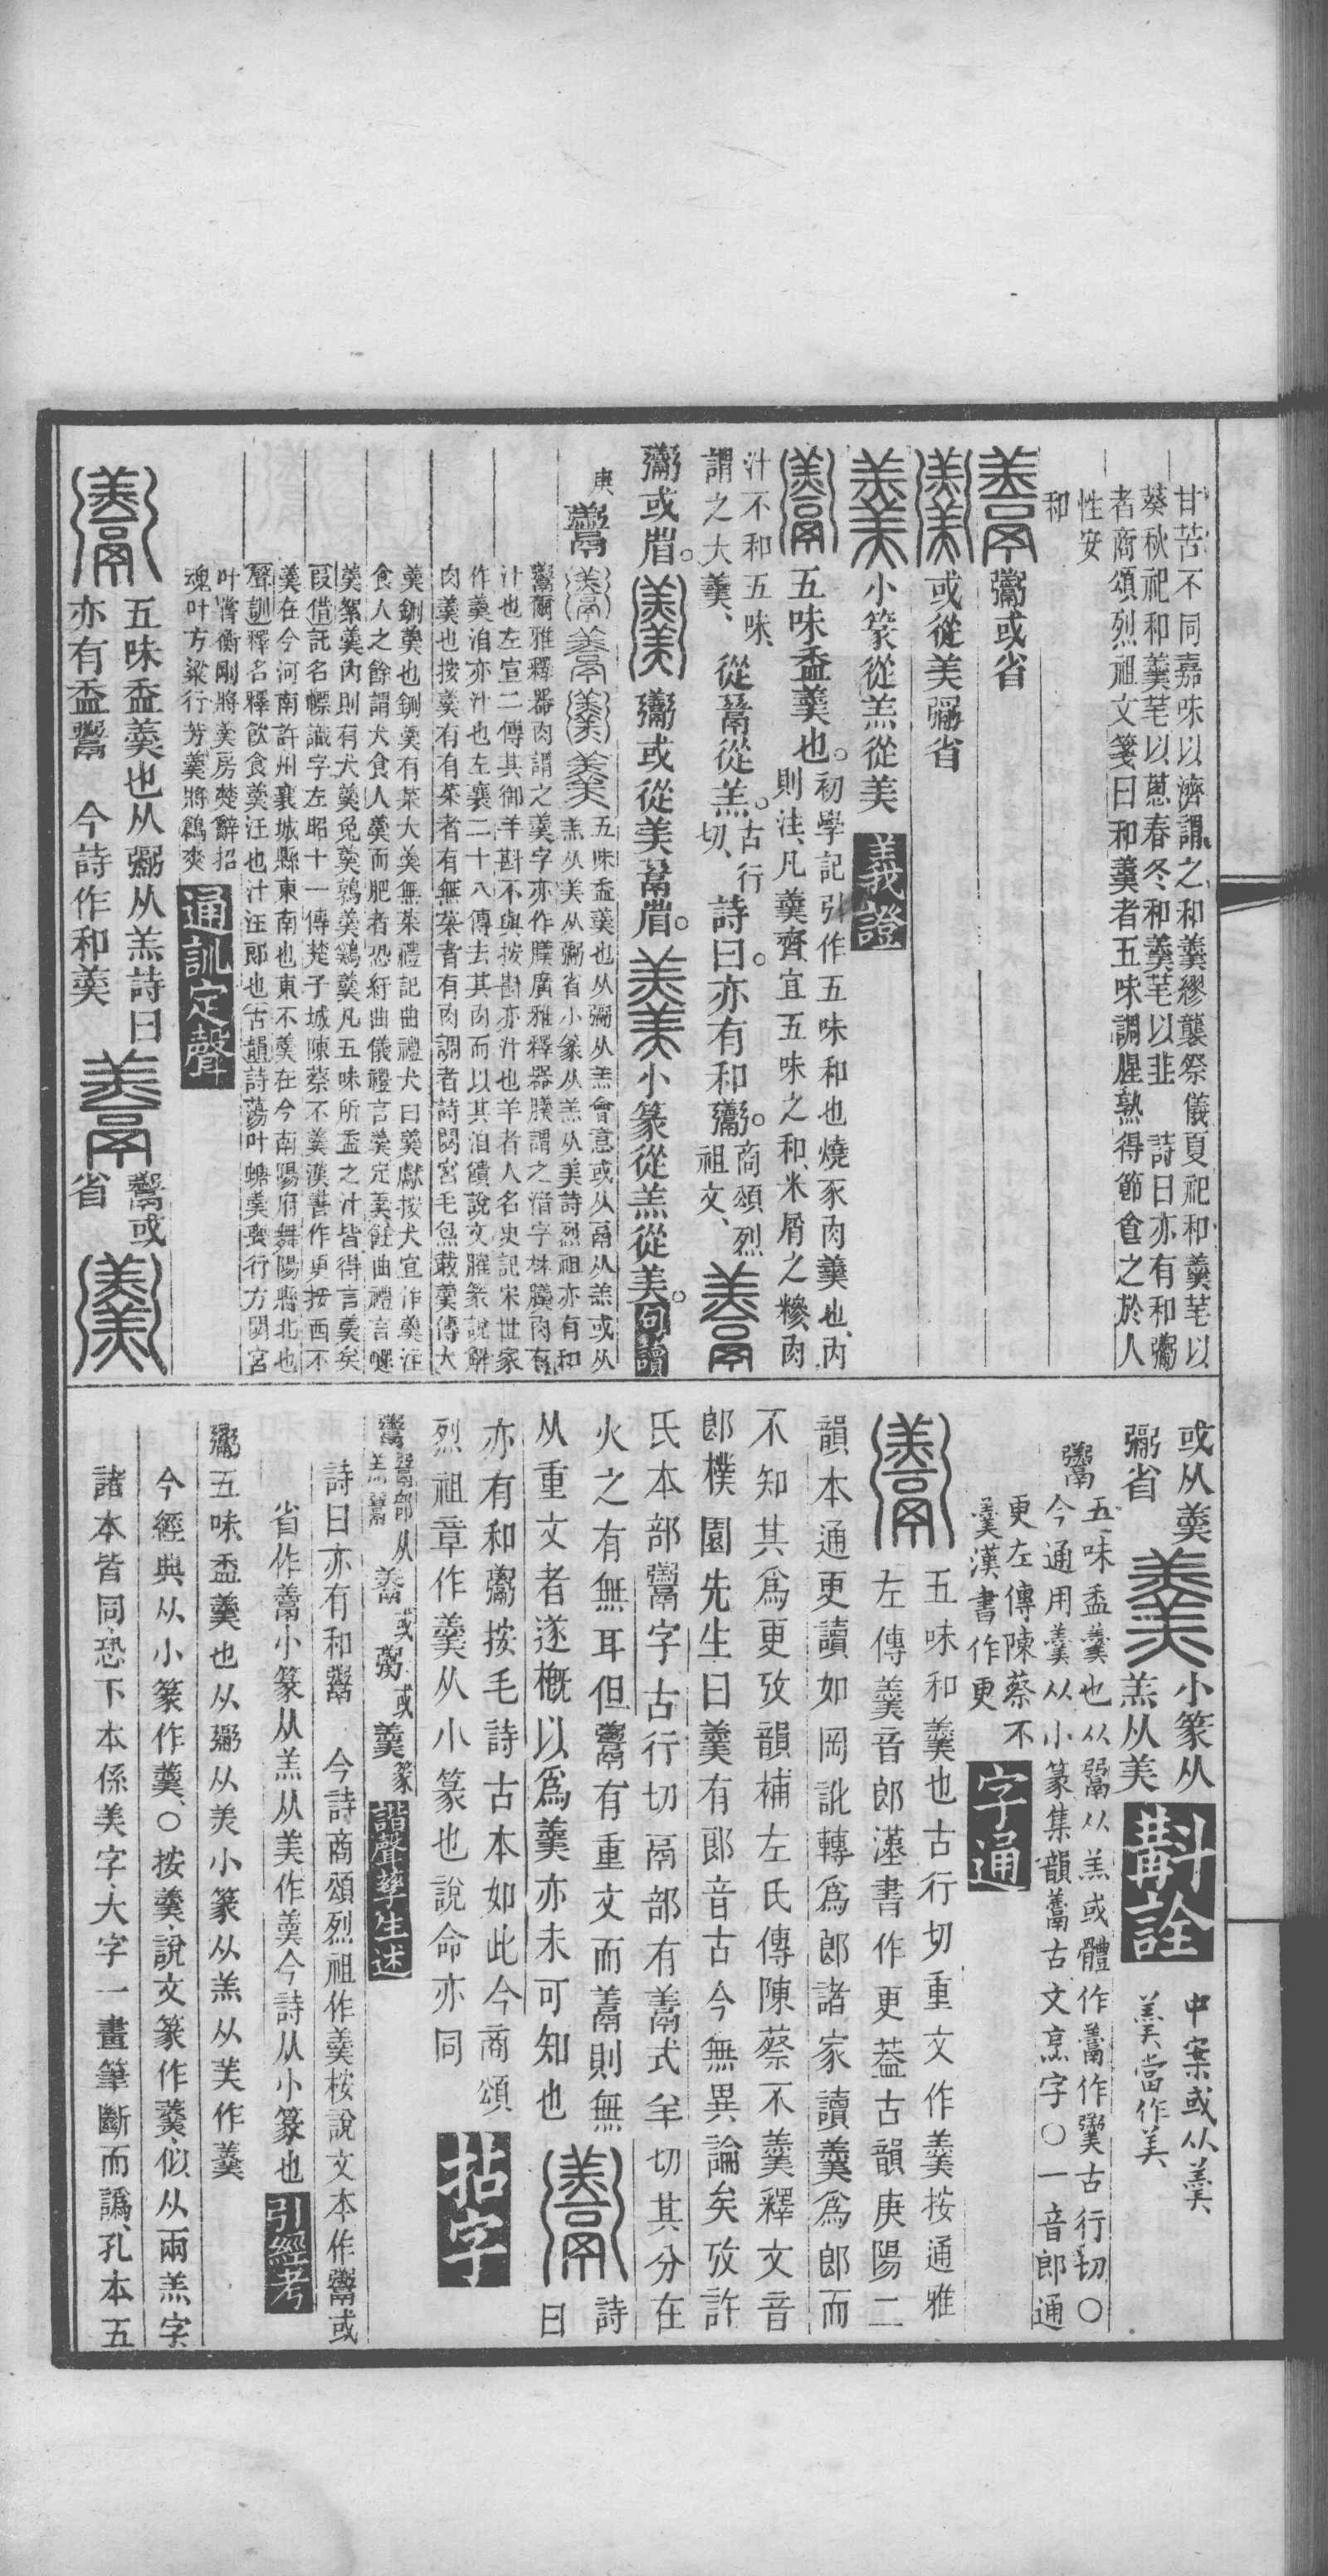 甘苦不同嘉味以濟謂之和羹繆襲祭儀夏祀和羹芼以
葵秋祀和羹芼以蔥春冬和羹芼以韭　詩曰亦有和𩱧
者商頌烈祖文箋曰和羹者五味調腥熟得節食之於人
性安
和
𩱧或省
或從美𢐀省
小篆從羔從美　義證
五味盉羹也。初學記引作五味和也燒豕肉羹也、內
則注、凡羹齊宜五味之和、米屑之糝、肉
汁不和五味、
謂之大羹、從䰜從羔。古行
切、詩曰。亦有和𩱧。商頌烈
祖文、
𩱧或省。𩱧或從美䰜省。小篆從羔從美。句讀
庚　五味盉羹也从𢐀从羔會意或从鬲从羔或从
羔从美从𢐀省小篆从羔从美詩烈祖亦有和
𩱧爾雅釋器肉謂之羹字亦作膷廣雅釋器膷謂之湆字林膷肉有
汁也左宣二傳其御羊斟不與按斟亦汁也羊者人名史記宋世家
作羹洎亦汁也左襄二十八傳去其肉而以其洎饋說文臛篆說解
肉羹也按羹有有菜者有無菜者有肉調者詩閟宮毛炰胾羹傳大
羹鉶羹也鉶羹有菜大羹無菜禮記曲禮犬曰羹獻按犬宜作羹注
食人之餘謂犬食人羹而肥者恐紆曲儀禮言羹定羹飪曲禮言㘓
羹絮羹內則有犬羹兔羹鶉羹鷄羹凡五味所盉之汁皆得言羹矣
叚借託名幖識字左昭十一傳楚子城陳蔡不羹漢書作更按西不
羹在今河南許州襄城縣東南也東不羹在今南陽府舞陽縣北也
聲訓釋名釋飮食羹汪也汁汪郎也古韻詩蕩叶螗羹喪行方閟宮
叶嘗衡剛將羹房楚辭招
魂叶方粱行芳羹將鶬爽　通訓定聲
五味盉羹也从𢐀从羔詩曰
亦有盉𩱧　今詩作和羹
𩱧或
省
或从羹
𢐀省　小篆从
羔从美　斠詮　中案或从羹
羹當作美
五味盉羹也从𢐀从羔或體作𩱧作羹古行切○
今通用羹从小篆集韻𩱧古文烹字○一音郎通
更左傳陳蔡不
羹漢書作更　字通
五味和羹也古行切重文作羹按通雅
左傳羹音郎漢書作更葢古韻庚陽二
韻本通更讀如岡訛轉爲郎諸家讀羹爲郎而
不知其爲更攷韻補左氏傳陳蔡不羹釋文音
郎樸園先生曰羹有郎音古今無異論矣攷許
氏本部𩱧字古行切鬲部有𩱧式羊切其分在
火之有無耳但𩱧有重文而𩱧則無　詩
从重文者遂概以爲羹亦未可知也　曰
亦有和𩱧按毛詩古本如此今商頌
烈祖章作羹从小篆也說命亦同　拈字
諧聲孳生述
詩曰亦有和𩱧　今詩商頌烈祖作羹桉說文本作𩱧或
省作𩱧小篆从羔从美作羹今詩从小篆也　引經考
𩱧五味盉羹也从𢐀从羔小篆从羔从美作羹
今經典从小篆作羹、○按羹、說文篆作羹、似从兩羔字
諸本皆同、恐下本係美字、大字一畫筆斷而譌、孔本五